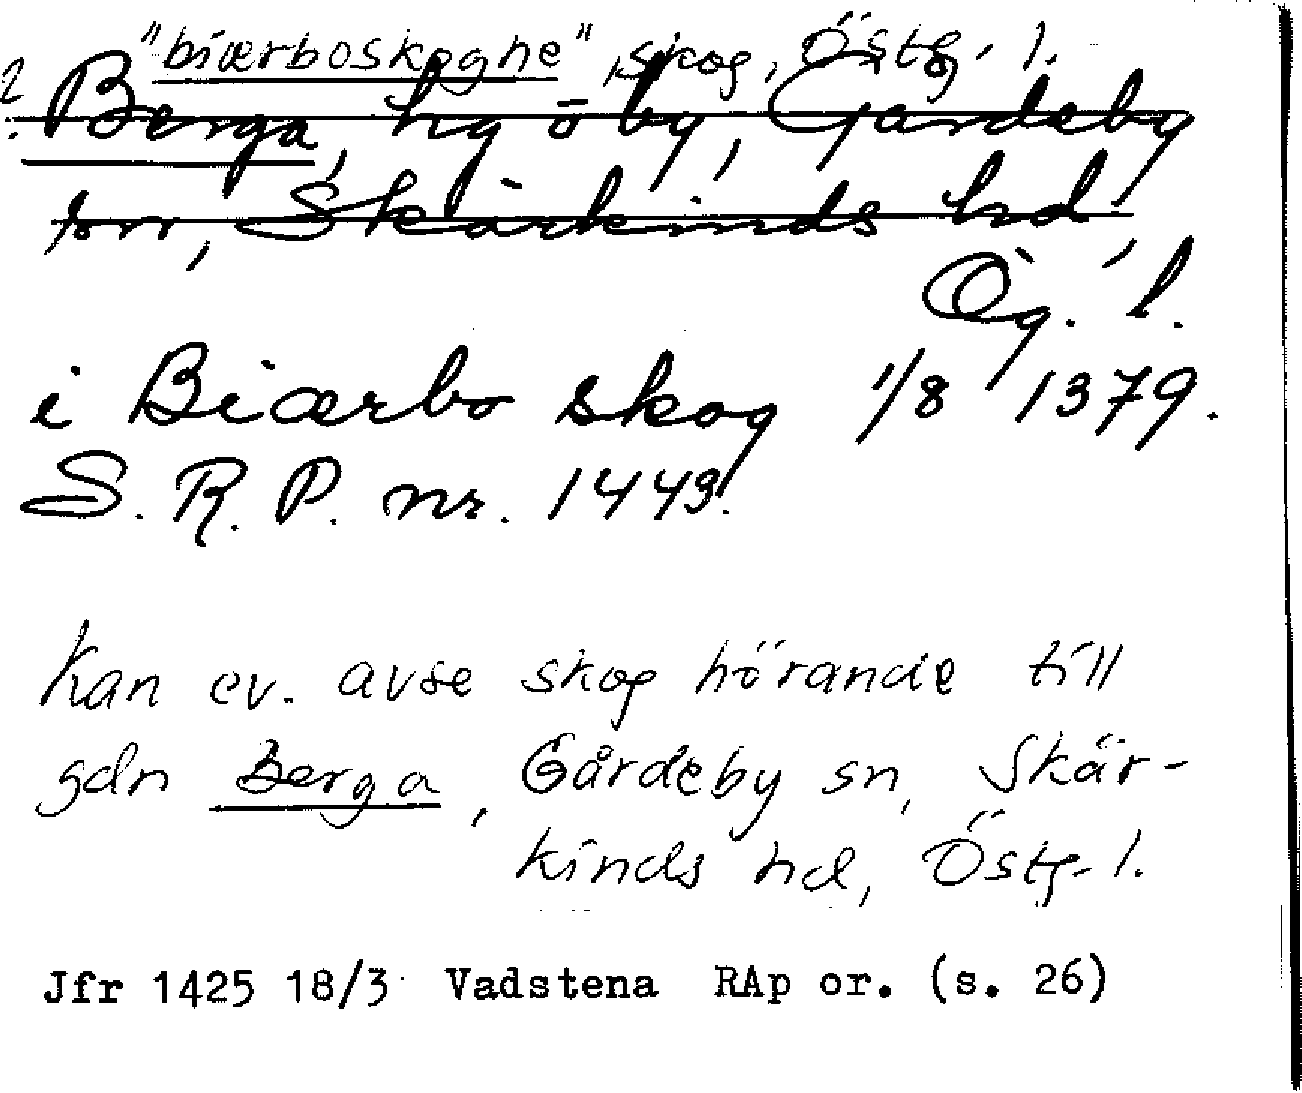 "biærboskoghe", skog, Östg. l.
? Berga, hg o by, Gårdeby
sn, Skärkinds hd,
Ög. l.
i Biærbo skog 1/8 1379.
S. R. P. nr. 1443.
Kan ev. avse skog hörande till
gdn Berga, Gårdeby sn, Skär-
kinds hd, Östg. l.
Jfr 1425 18/3 Vadstena RAp or. (s. 26)